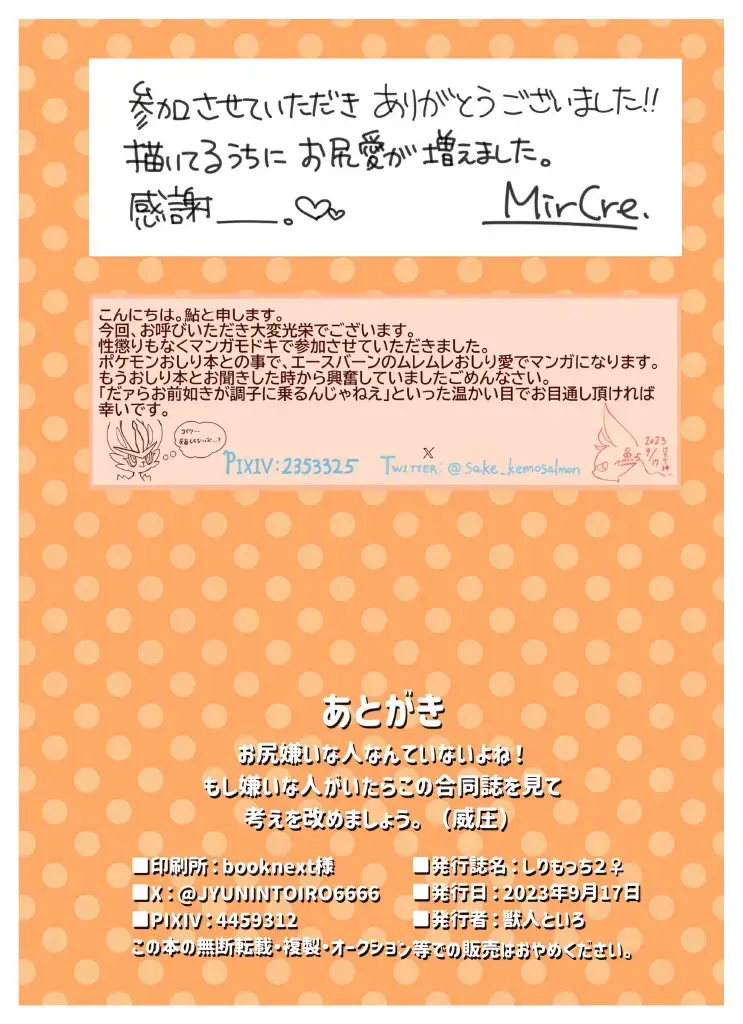 参加させていただき ありがとうございました!!
描いてるうちに お尻愛が 増えました。
感謝___。♡♡
MirCre.
こんにちは。鮎と申します。
今回、お呼びいただき大変光栄でございます。
性懲りもなくマンガモドキで参加させていただきました。
ポケモンおしり本との事で、エースバーンのムレムレおしり愛でマンガになります。
もうおしり本とお聞きした時から興奮していましたごめんなさい。
「だァらお前如きが調子に乗るんじゃねえ」といった温かい目でお目通し頂ければ
幸いです。
コイツ…
PIXIV:2353325
X
TWITTER: @sake_kemosalmon
2023
9/17
あとがき
お尻嫌いな人なんていないよね!
もし嫌いな人がいたらこの合同誌を見て
考えを改めましょう。(威圧)
■印刷所:booknext様
■X:@JYUNINTOIRO6666
■PIXIV:4459312
■発行誌名:しりもっち2♀
■発行日:2023年9月17日
■発行者:獣人といろ
この本の無断転載・複製・オークション等での販売はおやめください。